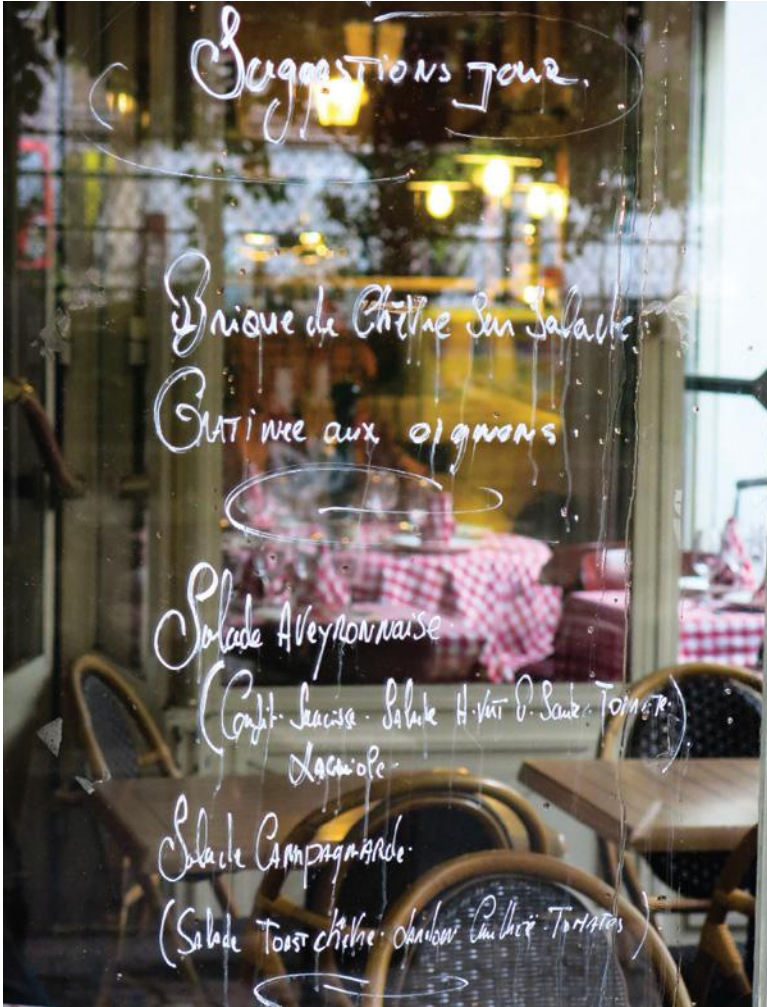 Suggestions jour.
Brique de Chèvre sur salade.
Gratinee aux oignons.
Salade Aveyronnaise.
(Confit. Saucisse. Salade H. Vert P. Sautée Tomate.)
Laguiole.
Salade Campagnarde.
(Salade Toast chèvre. Tomates)